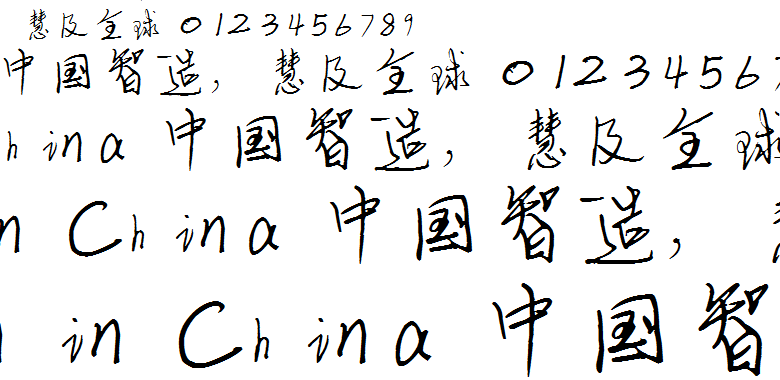 慧及全球 0123456789
中国智造，慧及全球 01234567
hina 中国智造，慧及全球
n China 中国智造，
in China 中国智